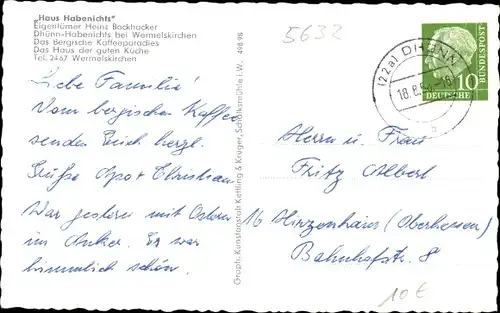 „Haus Habenichts"
Eigentümer Heinz Backhacker
Dhünn-Habenichts bei Wermelskirchen
Das Bergische Kaffeeparadies
Das Haus der guten Küche
Tel. 2467 Wermelskirchen
498 98
5632
(22a) DHÜNN
18.8.
10
DEUTSCHE
BUNDESPOST
Liebe Familie!
Vom bergischen Kaffee
senden Euch herzl.
Grüße Christian
War gestern mit Ostern
im Anker. Es war
himmlich schön.
Graph. Kunstanstalt Kettling & Krüger, Schalksmühle i. W.
Herrn u. Frau
Fritz Albert
16 Hirzenhain (Oberhessen)
Bahnhofstr. 8
10€